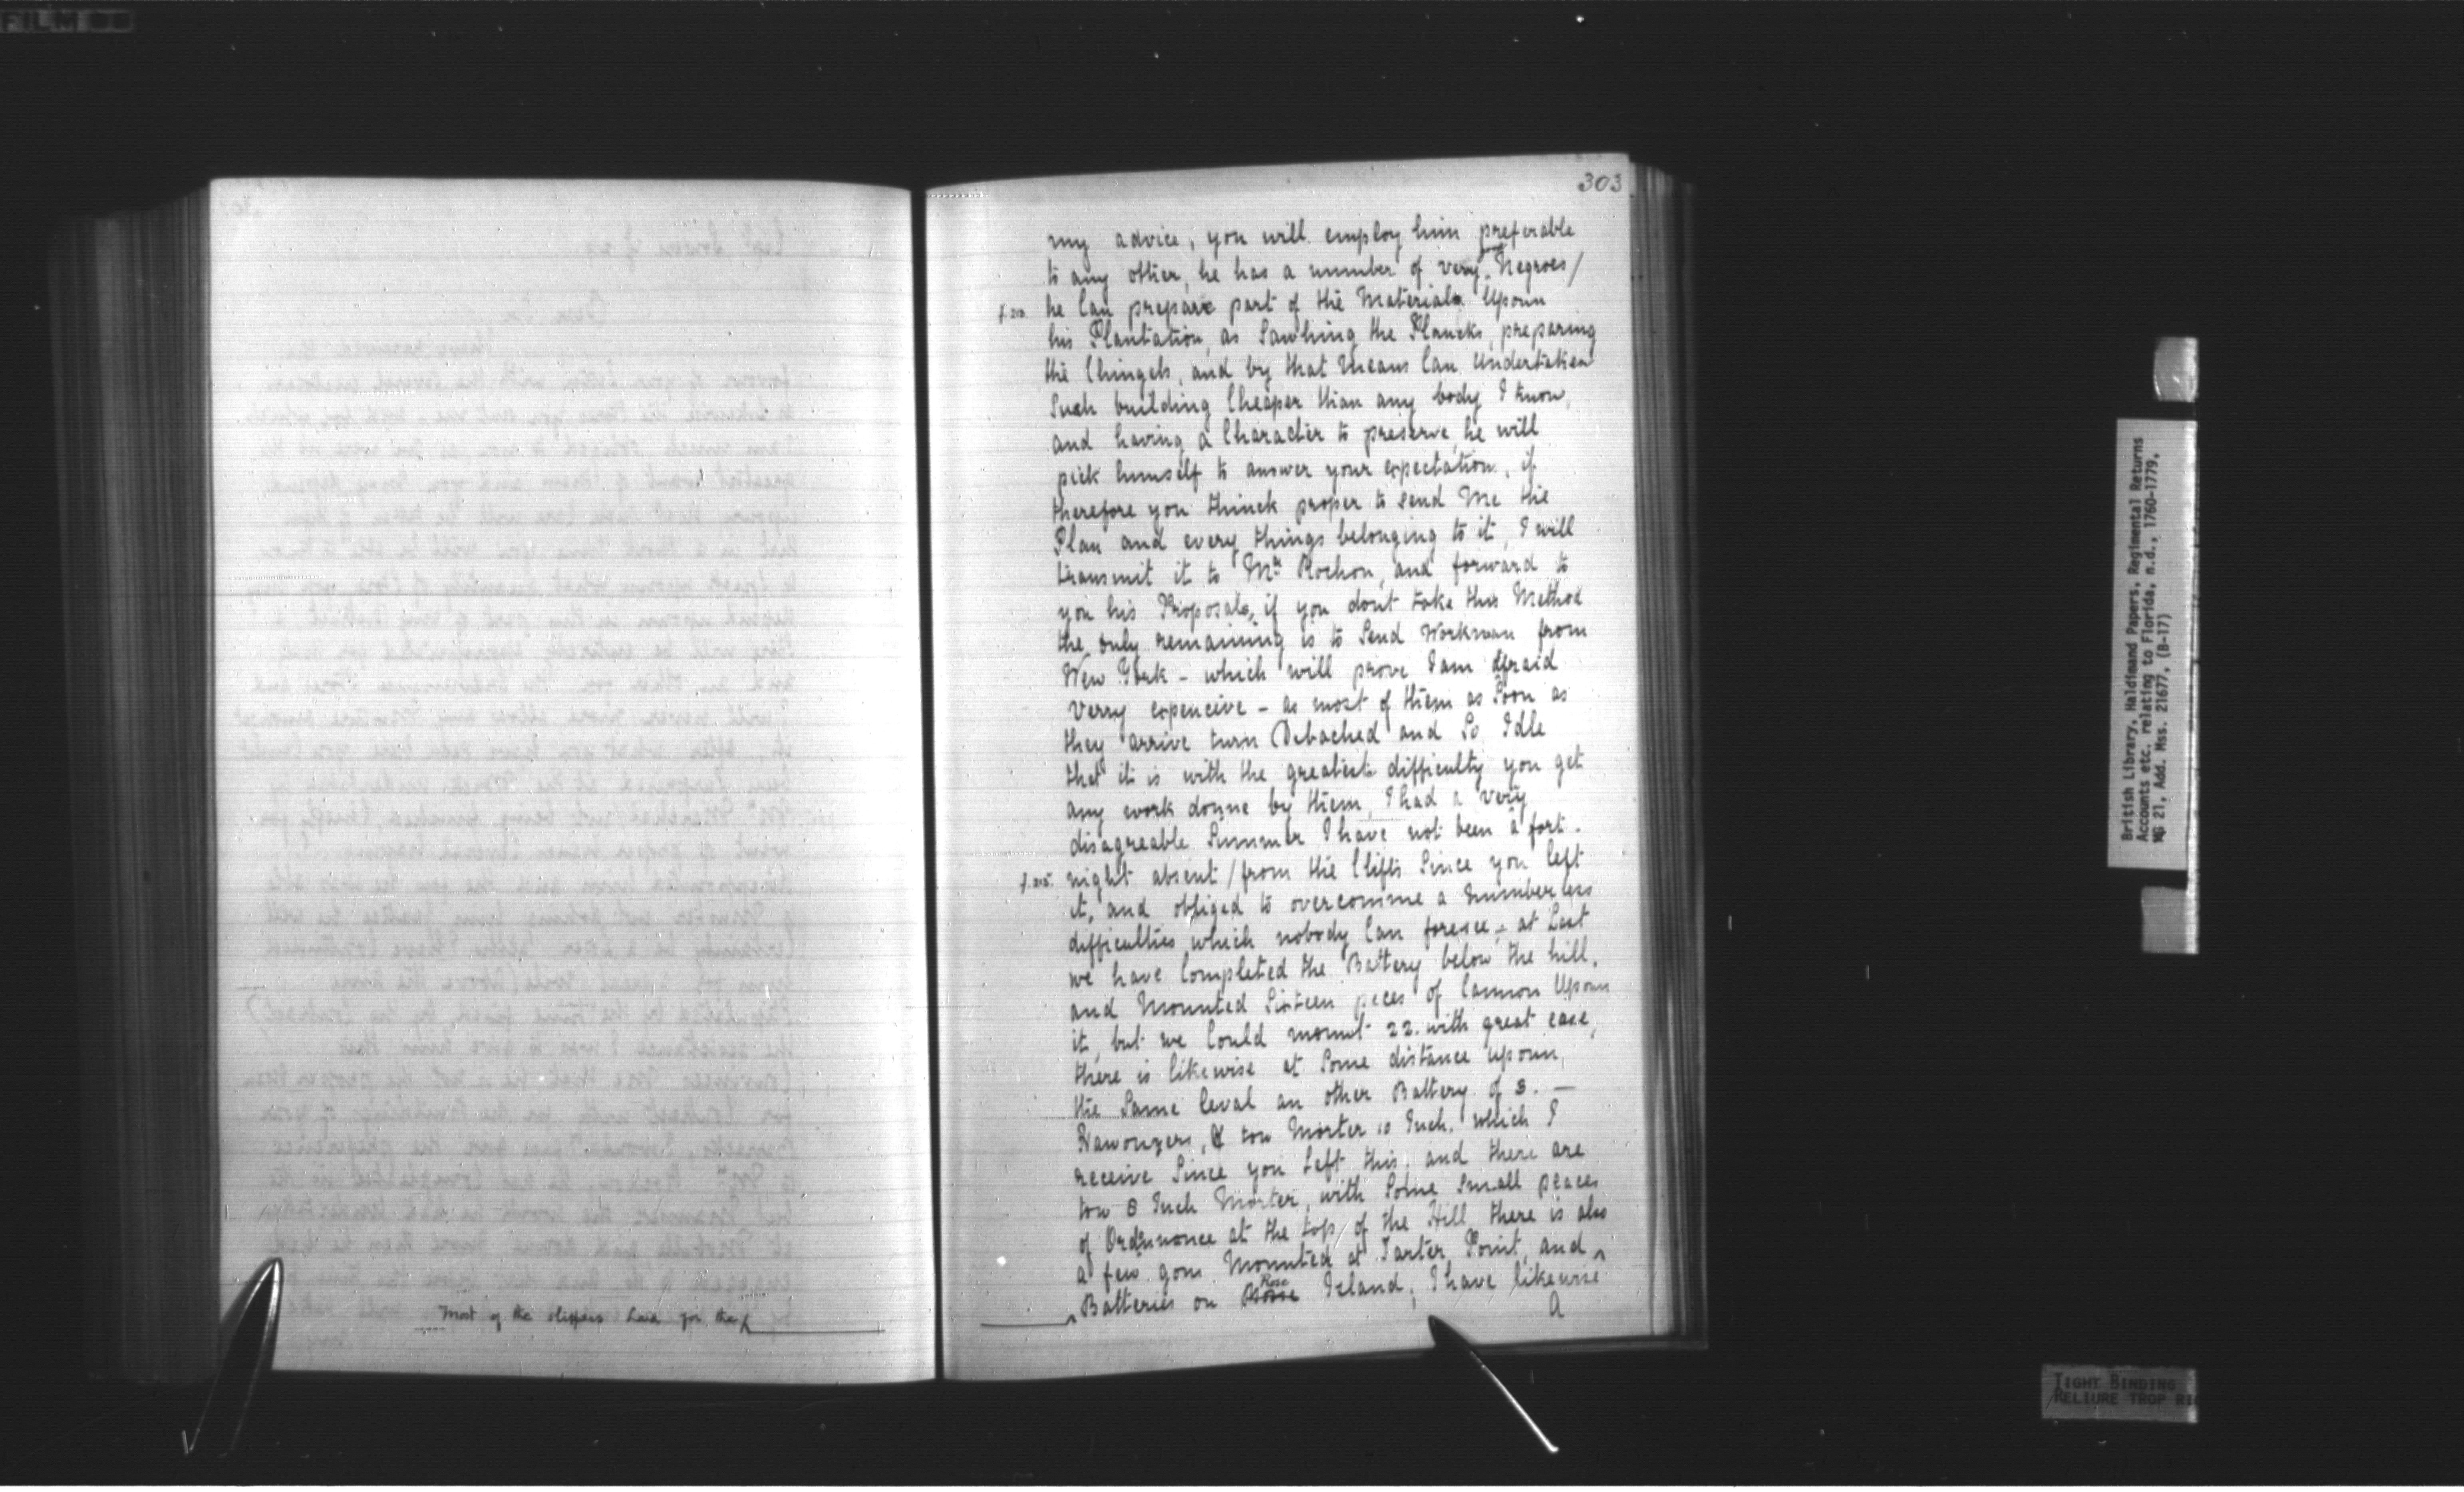 303
my advice, you will employ him preferable
to any other, he has a number of very good Negroes/
f. 210. he Can prepare part of the Materials Upoun
his Plantation, as Sawhing the Plancks, preparing
the Chingels, and by that Means Can Undertaken
Such building Cheaper than any body I know,
and having a Character to preserve, he will
pick himself to answer your expectation, if
therefore you thinck proper to Send Me the
Plan and every things belonging to it, I will
transmit it to Mr Rochon, and forward to
you his Proposals, if you dont take this Method
the only remaining is to Send Workman from
New York - which will prove I am afraid
Verry expencive - as most of them as Soon as
they arrive turn Debached and So Idle
that it is with the greatest difficulty you get
any work donne by them, I had a very
disagreable Summer I have not been a fort-
night absent / from the Clifts Since you left
it, and obliged to overcomme a Number less
difficulties which nobody Can foresee, - at Last
we have Completed the Battery below the hill,
and Mounted Sixteen peces of Cannon Upoun
it, but we Could mount 22. with great ease,
there is likewise at Some distance upoun,
the Same leval an other Battery of 3. —
Hawonzers, & tow Morter 10 Inch. which I
receive Since you Left this, and there are
tow 8 Inch Morter, with Some Small peaces
of Ordnnonce at the top/ of the Hill, there is also
a few gons Mounted at Tarter Point, and
Batteries on Rose Island, I have likewise
A
Most of the slippers had for the
British Library, Haldimand Papers, Regimental Returns
Accounts etc. relating to Florida, n.d., 1760-1779.
MG 21, Add. Mss. 21677, (B-17)
TIGHT BINDING
RELIURE TROP